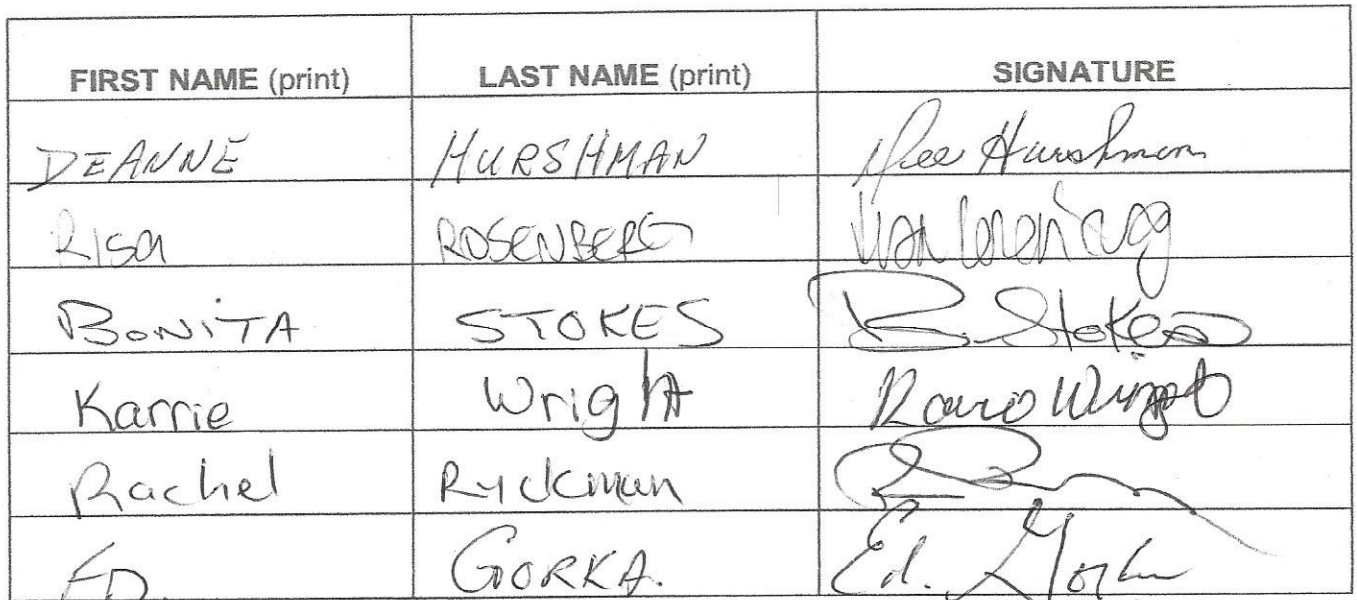 FIRST NAME (print) LAST NAME (print) SIGNATURE
DEANNE HURSHMAN Dee Hurshman
Risa ROSENBERG
BONiTA STOKES B. Stokes
Karrie Wright Karrie Wright
Rachel Ryckman
ED. GORKA. Ed. Gorka